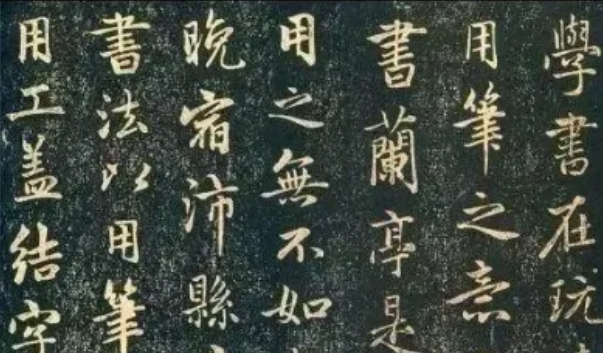 學書在玩
用筆之意
書蘭亭是
用之無不如
晚宿沛縣
書法以用筆
用工盖結字